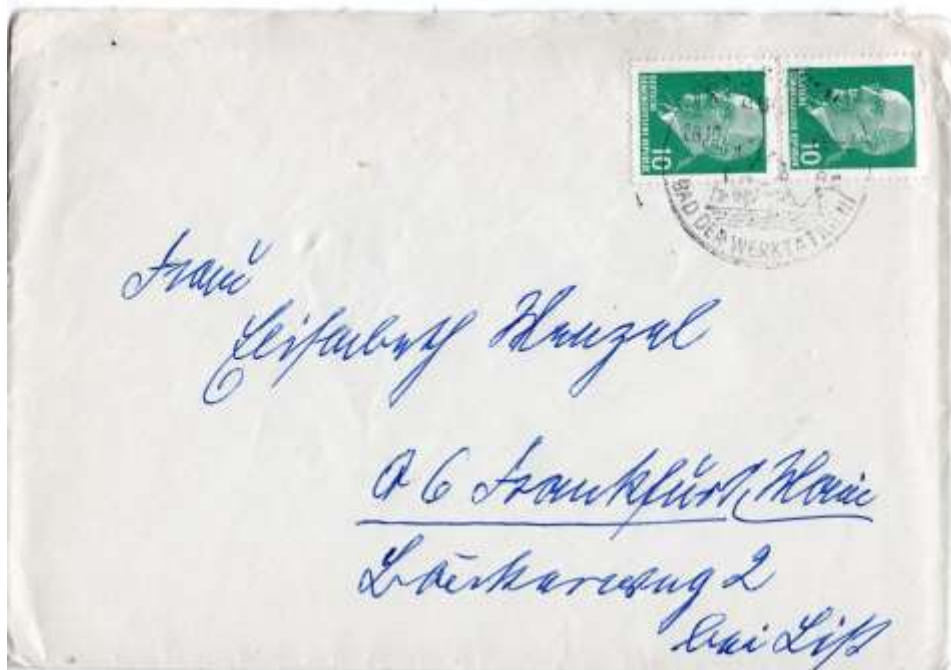 DEUTSCHE
DEMOKRATISCHE REPUBLIK
10
DEUTSCHE
DEMOKRATISCHE REPUBLIK
10
BAD DER WERKTÄTIGEN
Frau
Elisabeth Menzel
6 Frankfurt/Main
2
bei Liß